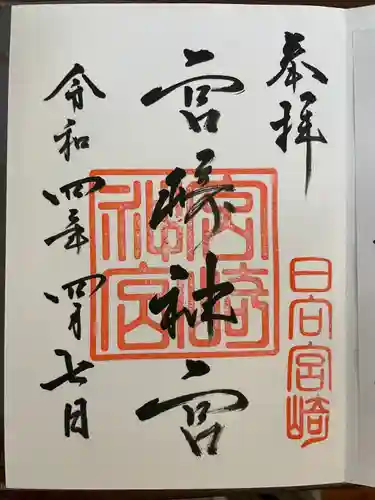 奉拝
日向宮崎
宮﨑神宮
宮崎神宮
令和四年四月七日